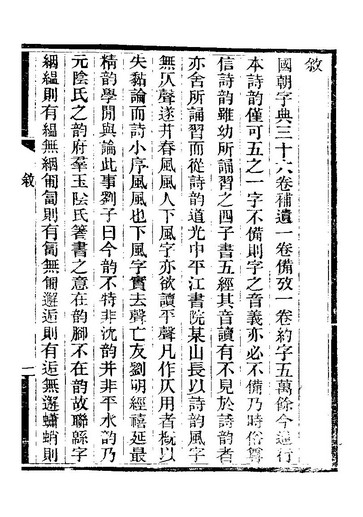 敘
國朝字典三十六卷補遺一卷備攷一卷約字五萬餘今通行
本詩韵僅可五之一字不備則字之音義亦必不備乃時俗尊
信詩韵雖幼所誦習之四子書五經其音讀有不見於詩韵者
亦舍所誦習而從詩韵道光中平江書院某山長以詩韵風字
無仄聲遂并春風風人下風字亦欲讀平聲凡作仄用者槪以
失黏論而詩小序風風也下風字實去聲亡友劉明經禧延最
精韵學閒與論此事劉子曰今韵不特非沈韵并非平水韵乃
元陰氏之韵府羣玉陰氏箸書之意在韵腳不在韵故聯緜字
絪縕則有縕無絪匍匐則有匐無匍邂逅則有逅無邂蠨蛸則
敘
一